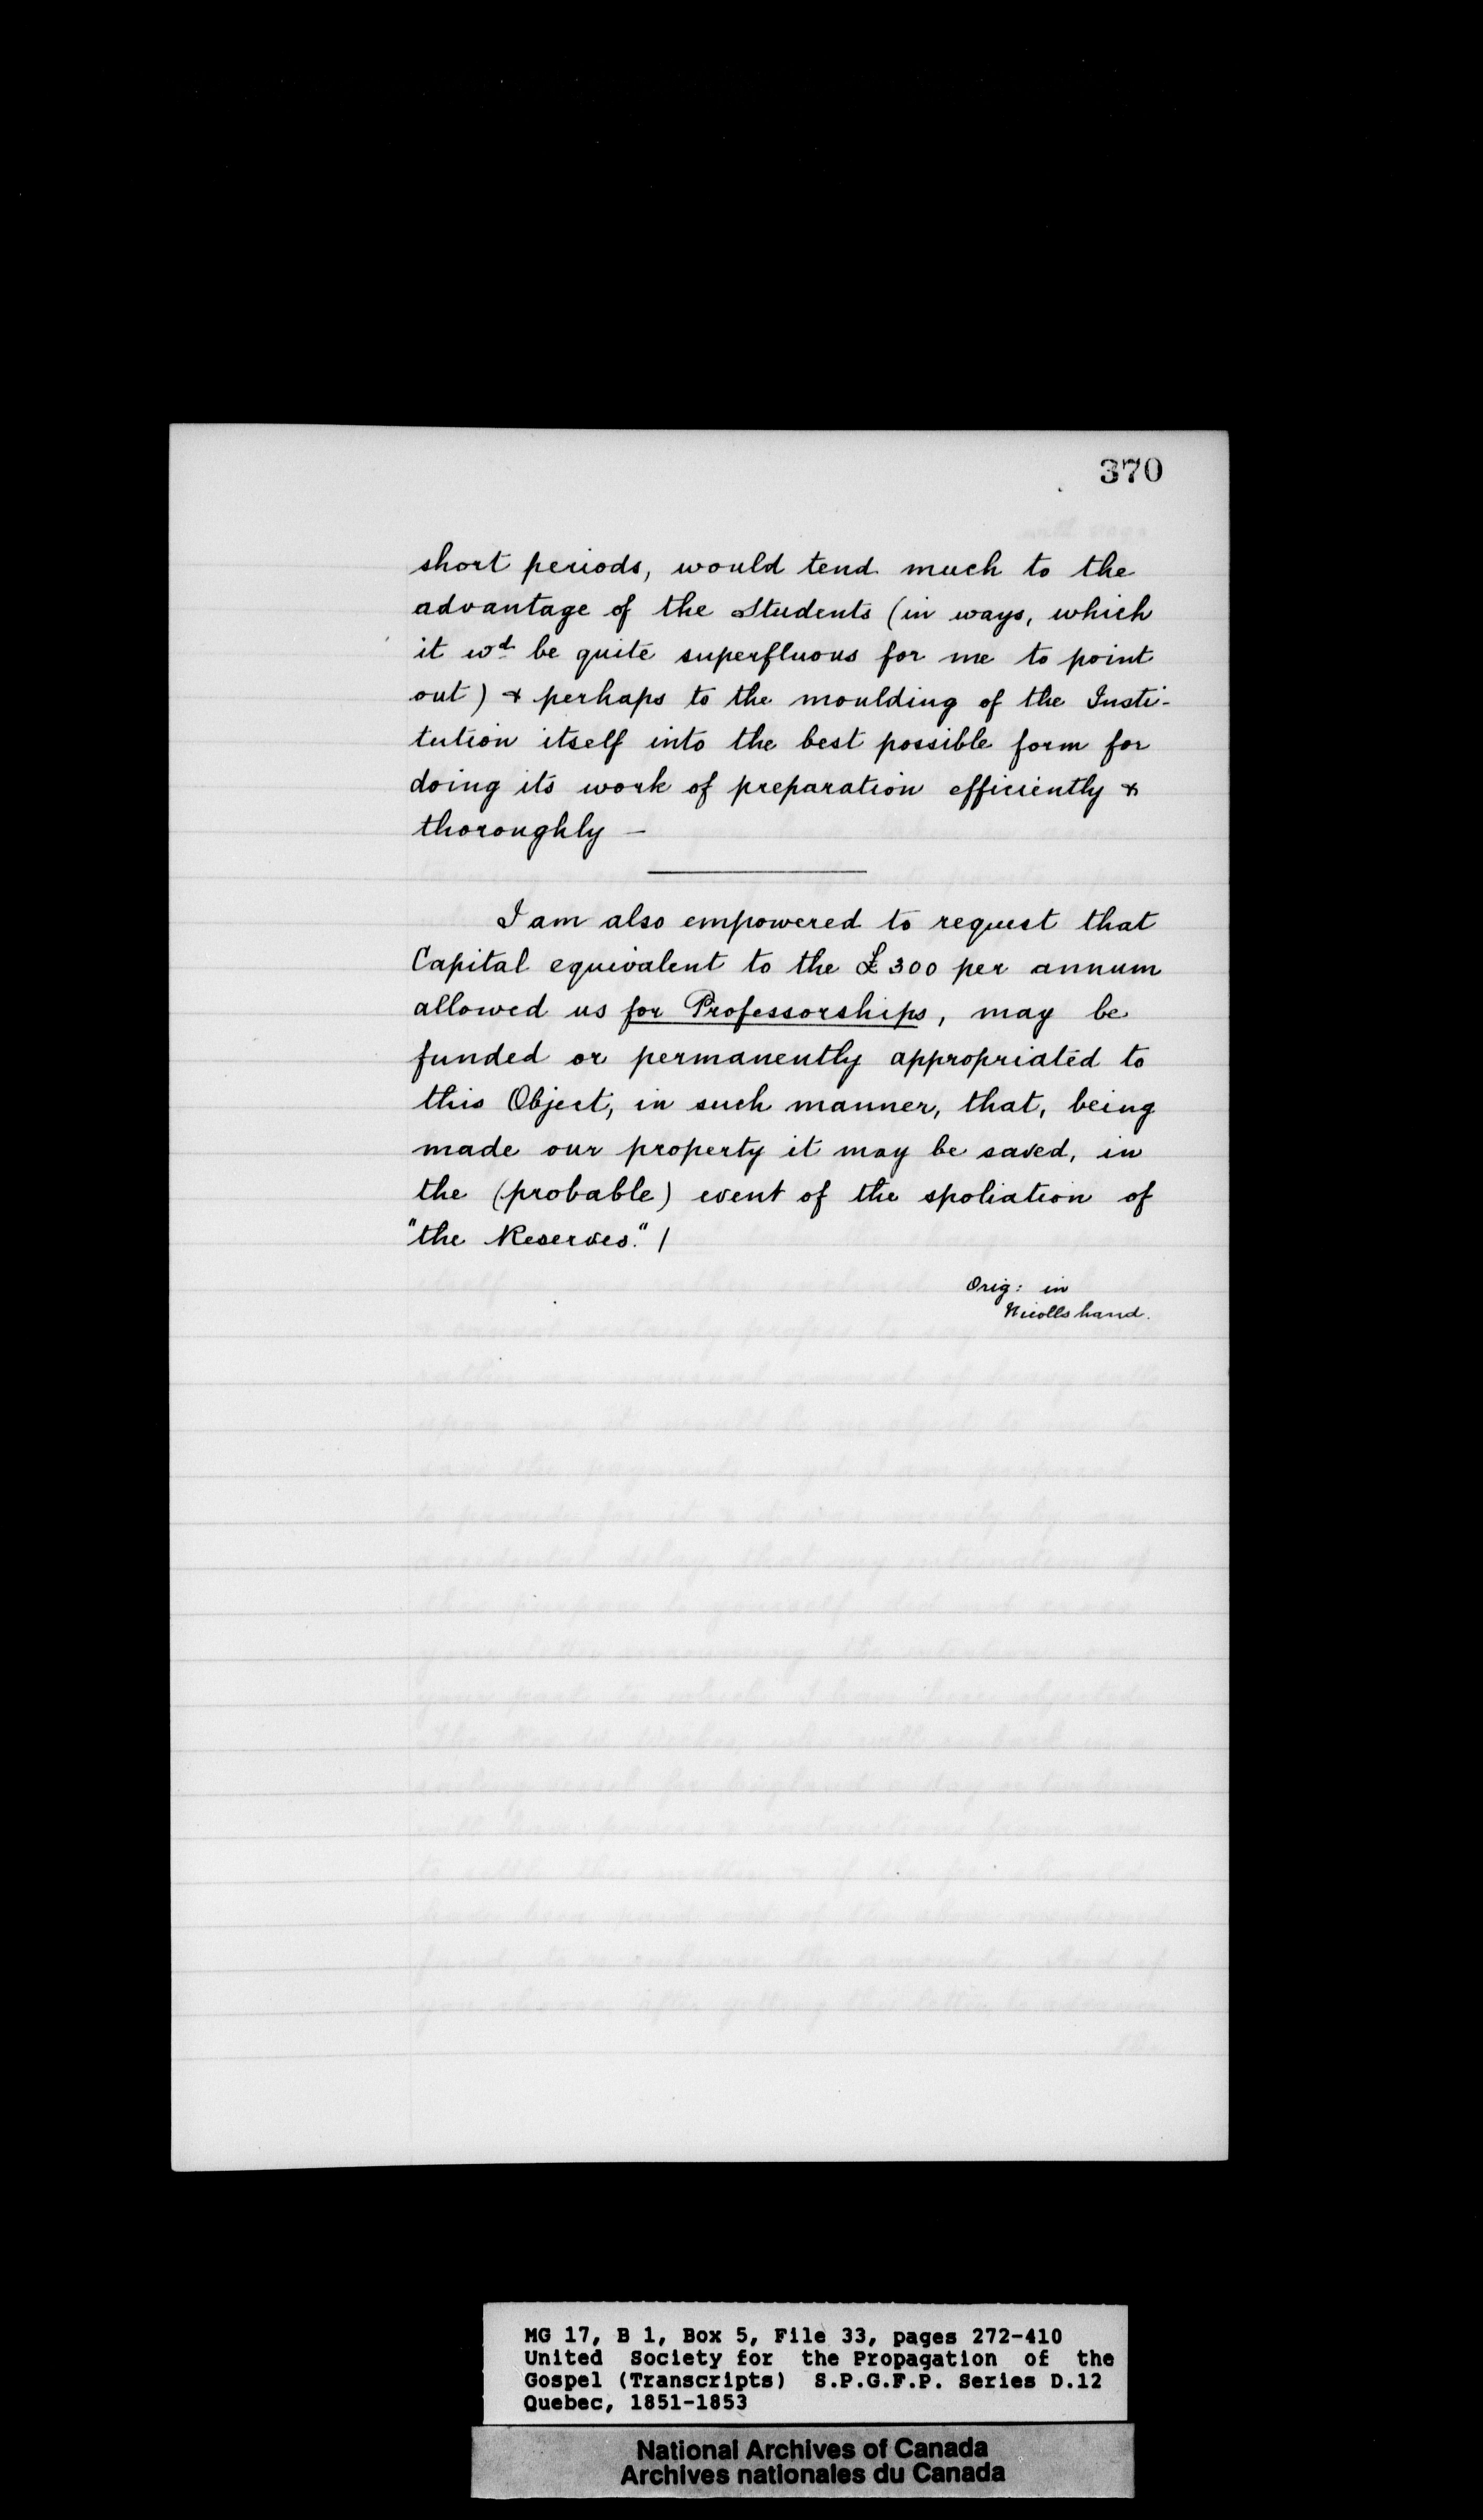 370
short periods, would tend much to the
advantage of the Students (in ways, which
it wd be quite superfluous for me to point
out) & perhaps to the moulding of the Insti-
tution itself into the best possible form for
doing its work of preparation efficiently &
thoroughly —
I am also empowered to request that
Capital equivalent to the £300 per annum
allowed us for Professorships, may be
funded or permanently appropriated to
this Object, in such manner, that, being
made our property it may be saved, in
the (probable) event of the spoliation of
"the Reserves." /
Orig: in
Nicolls hand.
MG 17, B 1, Box 5, File 33, pages 272-410
United Society for the Propagation of the
Gospel (Transcripts) S.P.G.F.P. Series D.12
Quebec, 1851-1853
National Archives of Canada
Archives nationales du Canada